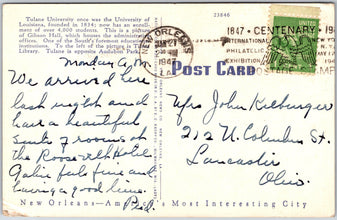 Tulane University once was the University of
Louisiana, founded in 1834; now has an enroll-
ment of over 4,000 students. This is a picture
of Gibson Hall, which houses the administrative
offices. One of the South's foremost educational
institutions. To the left of the picture is Tilton
Library. Tulane is opposite Audubon Park.
23846
POST CARD
NEW ORLEANS
1847 · CENTENARY · 19
INTERNATIONAL
PHILATELIC
EXHIBITION
POSTAGE
UNITED
Monday A.M.
We arrived here
last night and
have a beautiful
suite of rooms at
the Roosevelt Hotel
feels fine and
having a good time.
Mrs John Kieburger
212 N. Columbus St.
Lancaster
Ohio.
New Orleans—America's Most Interesting City